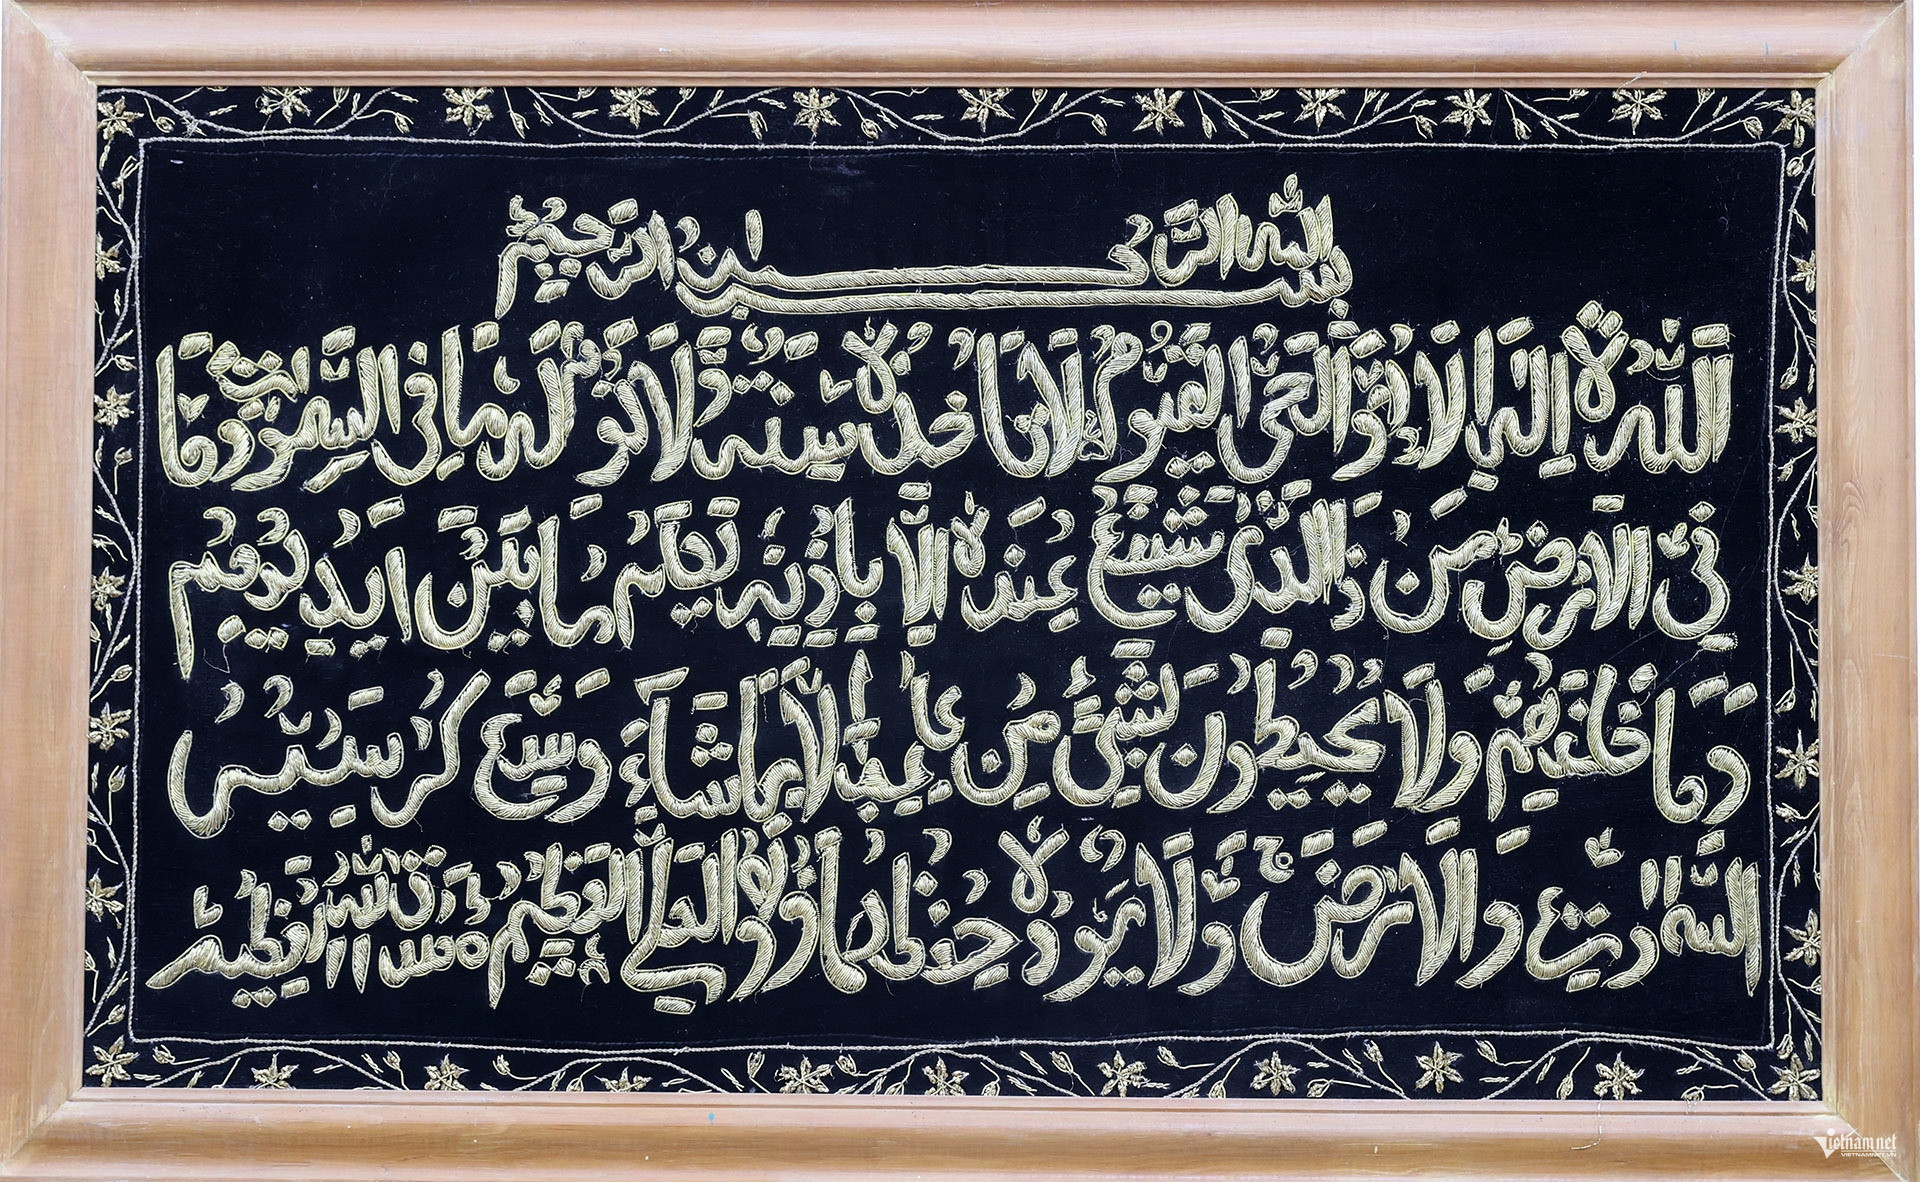 بسم الله الرحمن الرحيم
الله لا اله الا هو الحي القيوم لا تاخذه سنة ولا نوم له ما في السموت وما
في الارض من ذا الذي يشفع عنده الا باذنه يعلم ما بين ايديهم
وما خلفهم ولا يحيطون بشيء من علمه الا بما شاء وسع
والارض ولا يوده حفظهما وهو العلي العظيم
vietnamnet
VIETNAMNET.VN